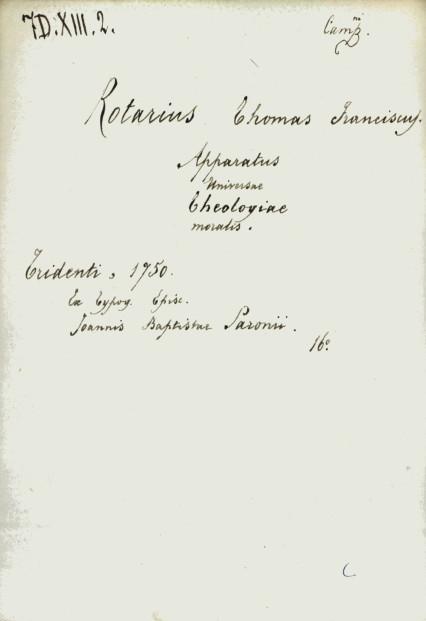 7D.XIII.2.
Rotarius Thomas Franciscus.
Apparatus
Universae
Theologiae
moralis.
Tridenti, 1750.
Ex Typog. Episc.
Joannis Baptistae Paronii.
16º